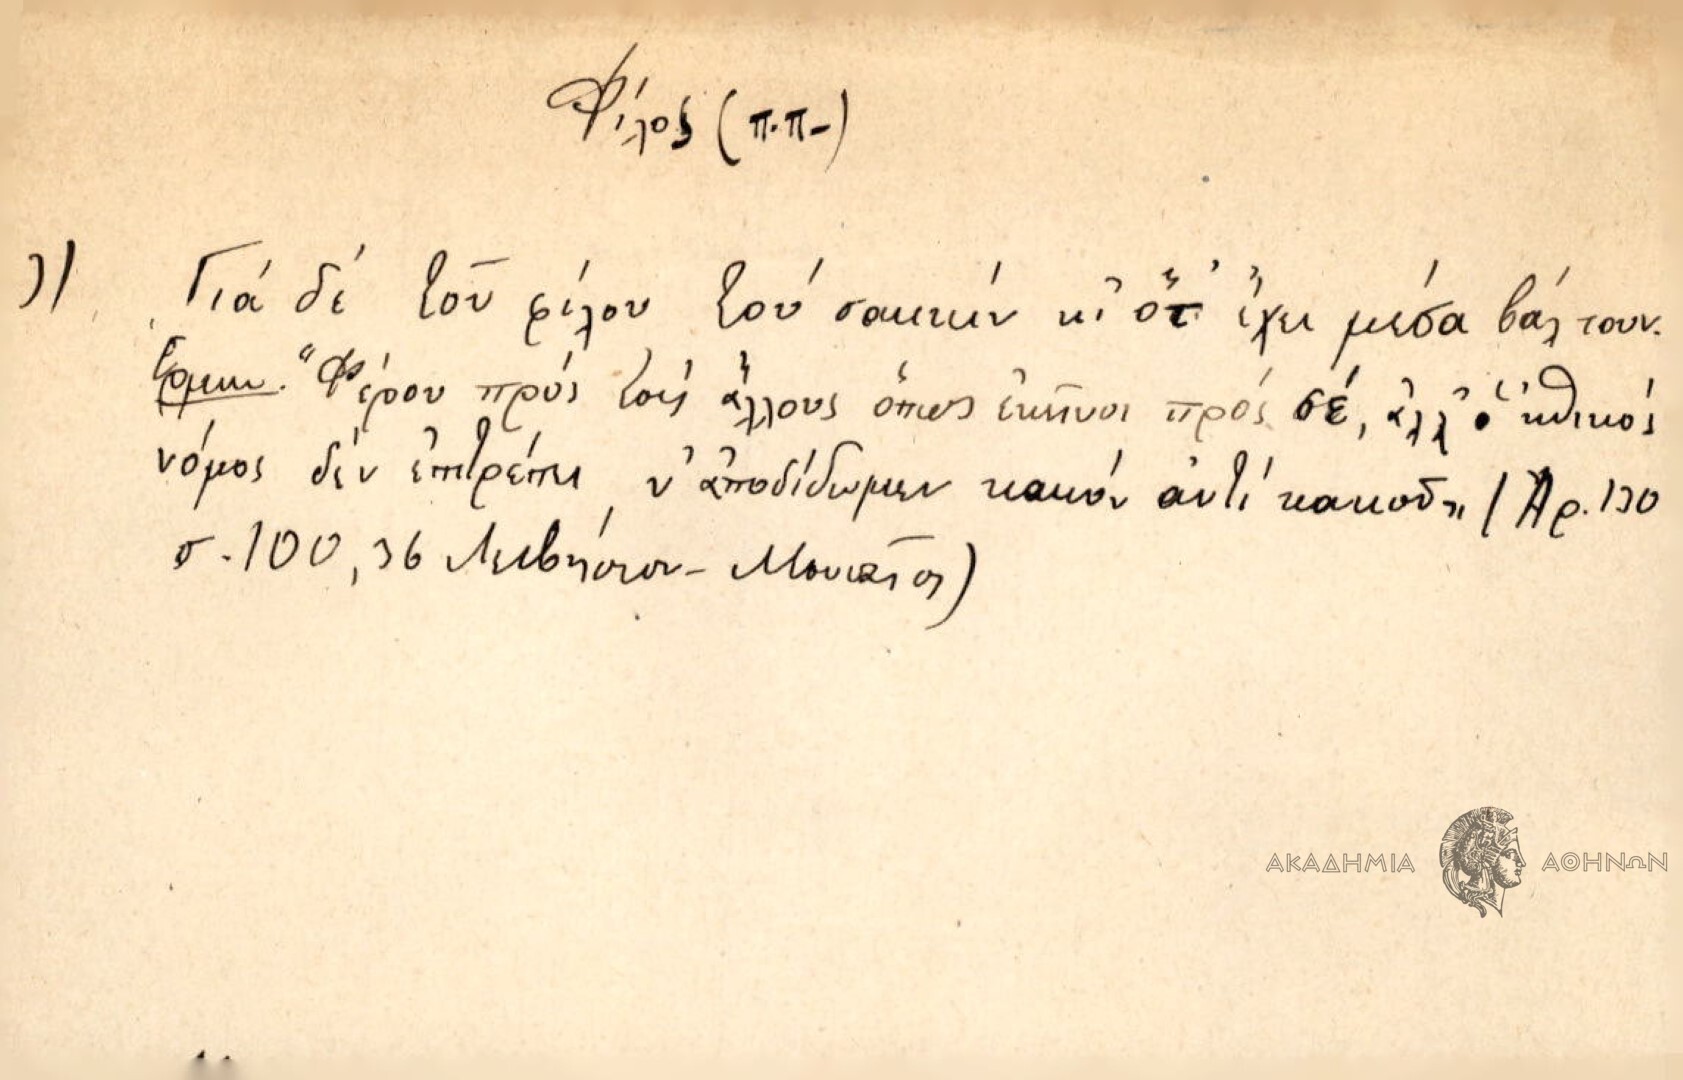 Φίλος (π.π-)
3) Γιά δέ τοῦ φίλου τού σακκίν κι ὅτ' ἔχει μέσα βάλ τουν.
Ερμην. "Φέρου πρός τούς ἄλλους ὅπως ἐκεῖνοι πρός σέ, ἀλλ' ὁ ἠθικός
νόμος δέν ἐπιτρέπει, ν' ἀποδίδωμεν κακόν ἀντί κακοῦ" (Αρ. 130
σ. 100, 36 Λιβήσιον-
ΑΚΑΔΗΜΙΑ ΑΘΗΝΩΝ